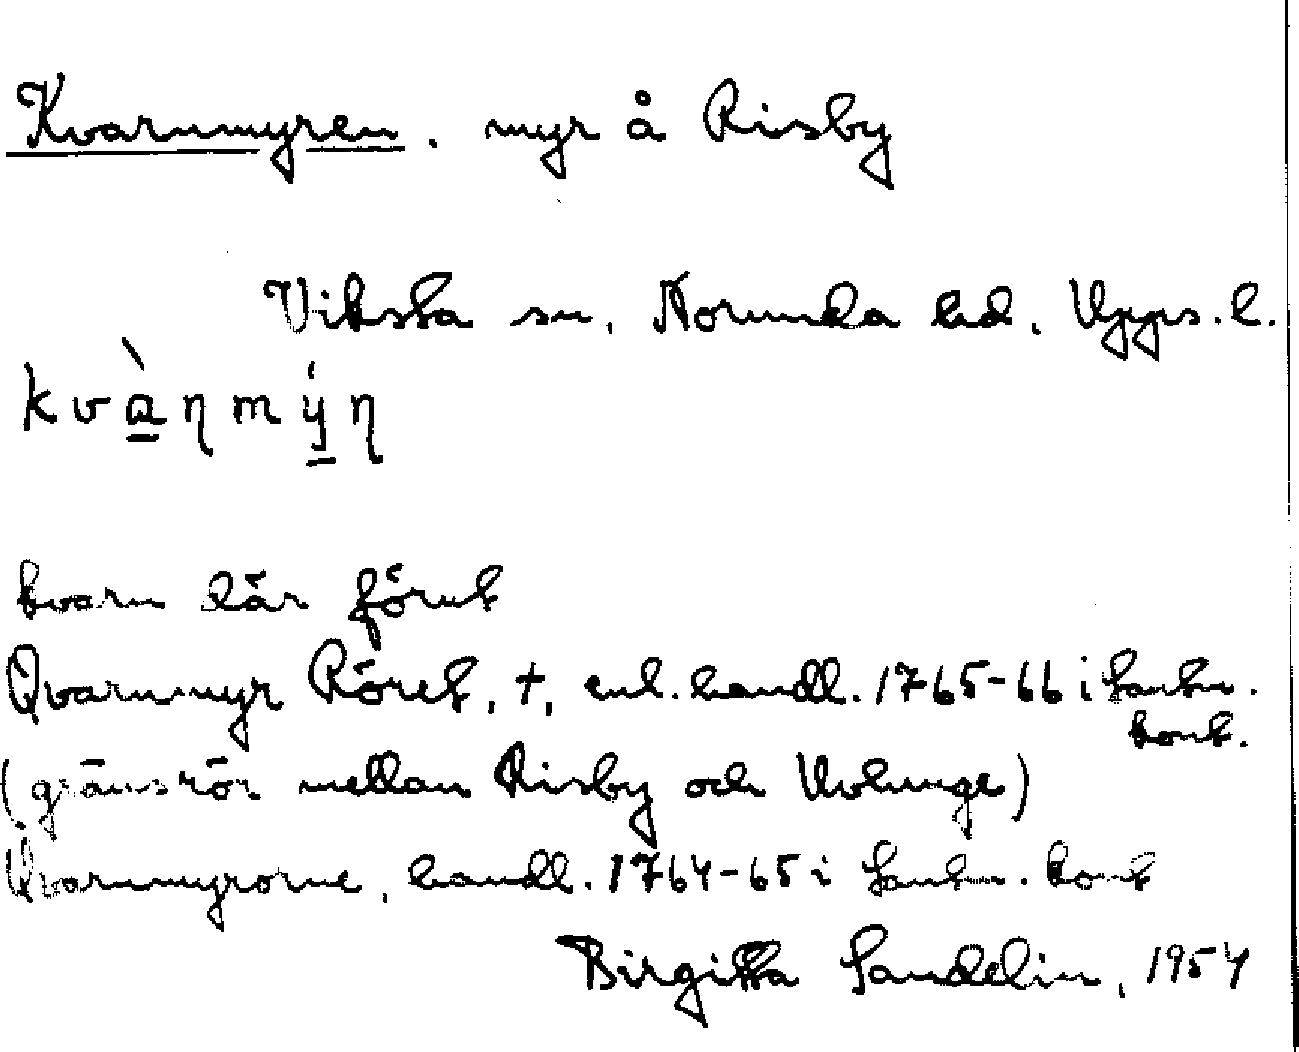 Kvarnmyren. myr å Risby
Viksta sn, Norunda hd, Upps. l.
kvànmýn
kvarn där förut
Qvarnmyr Röret, †, enl. handl. 1765-66 i lantm.
kont.
(gränsrör mellan Risby och Ubunge)
Qvarnmyrorne, handl. 1764-65 i lantm. kont
Birgitta Sandelin, 1954